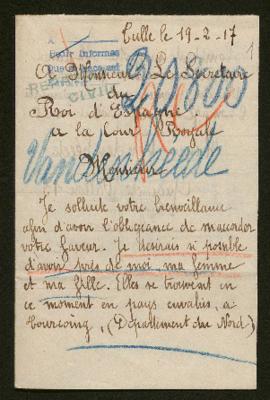 Tulle le 19-2-17
1
Pour Informer
A Monsieur Le Secretaire
du
Roi d'Espagne
a la Cour Royale
Monsieur
Je sollicite votre bienveillance
afin d'avoir l'obligeance de m'accorder
votre faveur. Je desirais si possible
d'avoir près de moi, ma femme
et ma fille. Elles se trouvent en
ce moment en pays envahis, a
Tourcoing, (Département du Nord)